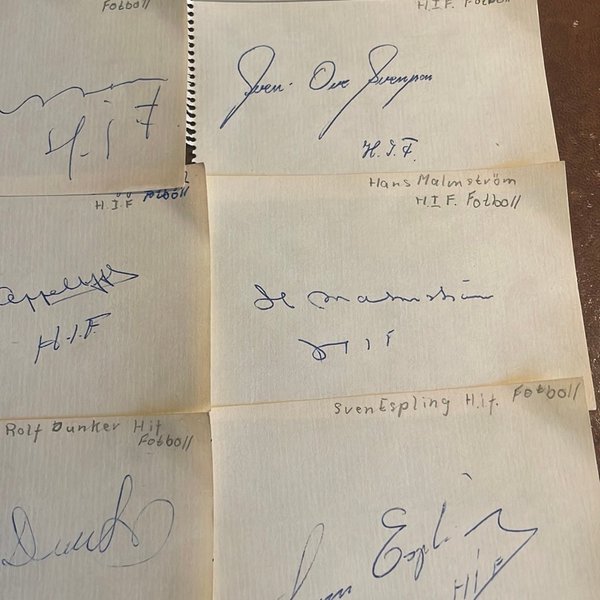 Fotboll
H.I.F
H.I.F. Fotboll
Sven-Ove Svensson
H.I.F.
Fotboll
H.I.F
H.I.F
Hans Malmström
H.I.F. Fotboll
H Malmström
H I F
Rolf Dunker Hif
Fotboll
Sven Espling H.i.f. Fotboll
Sven Espling
H I F